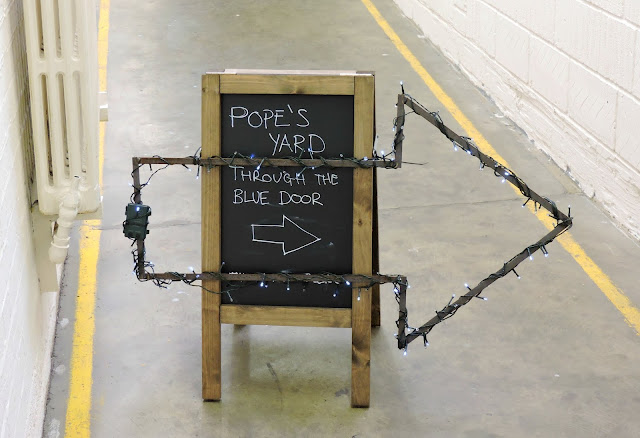 POPE'S
YARD
THROUGH THE
BLUE DOOR